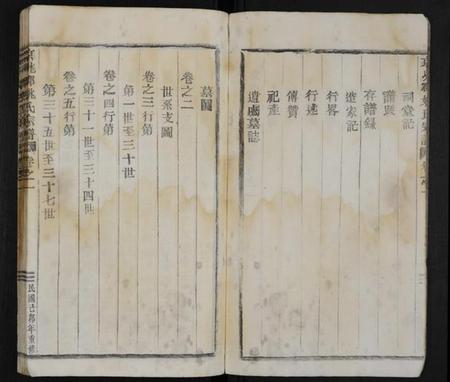 祠堂記
存譜錄
行畧
行述
傳贊
祀產
遺囑墓誌
墓圖
卷之二
世系支圖
卷之三行第
第一世至三十世
卷之四行第
第三十一世至三十四世
卷之五行第
第三十五世至三十七世
氏宗譜 卷之一
民國己卯年重修